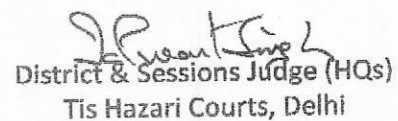 District & Sessions Judge (HQs)
Tis Hazari Courts, Delhi